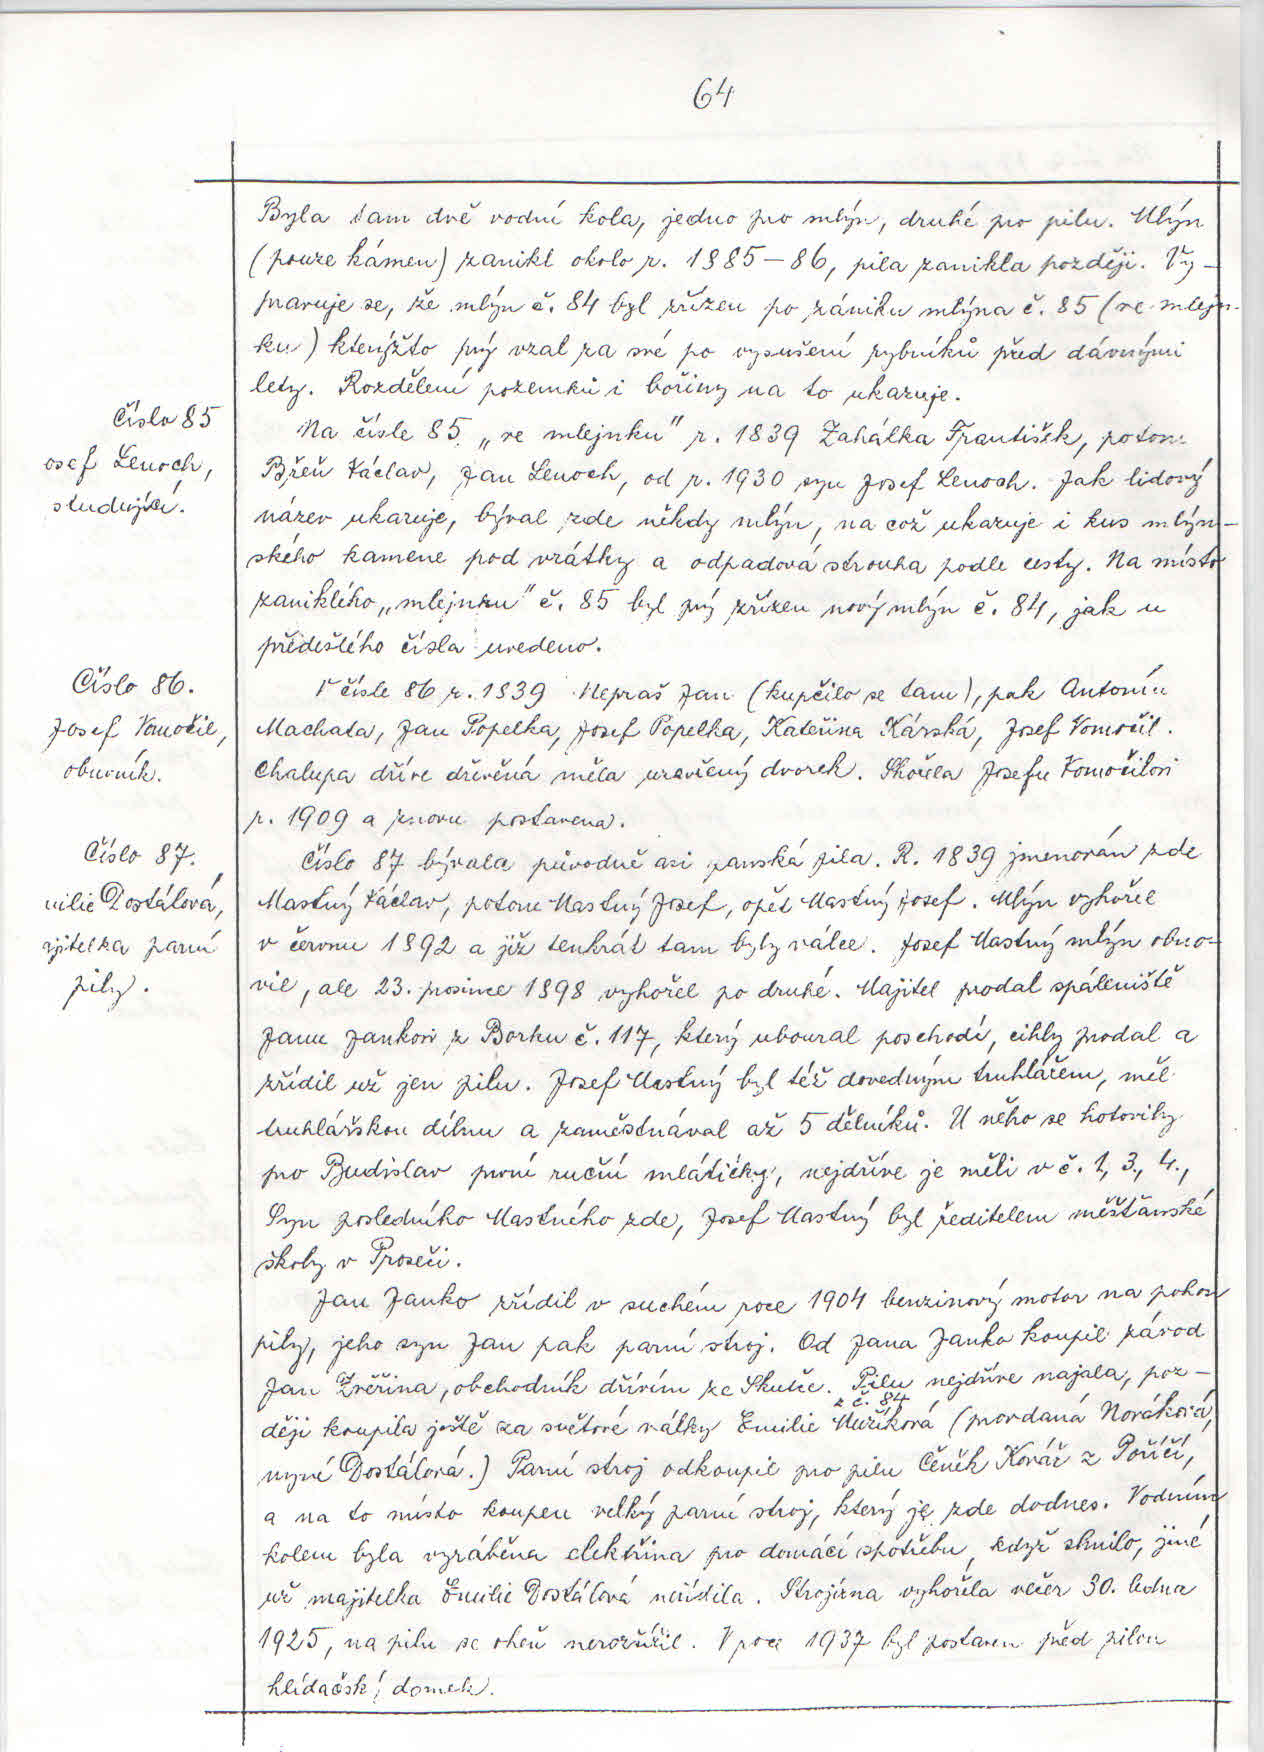 64
Byla tam dvě vodní kola, jedno pro mlýn, druhé pro pilu. Mlýn
(pouze kámen) zanikl okolo r. 1885–86, pila zanikla později. Vy-
pravuje se, že mlýn č. 84 byl zřízen po zániku mlýna č. 85 (ve mlejn-
ku) kterýžto prý vzal za své po vysušení rybníků před dávnými
lety. Rozdělení pozemků i bořiny na to ukazuje.
Číslo 85
osef Lenoch,
studující.
Na čísle 85 „ve mlejnku" r. 1839 Zahálka František, potom
Břeň Václav, Jan Lenoch, od r. 1930 syn Josef Lenoch. Jak lidový
název ukazuje, býval zde někdy mlýn, na což ukazuje i kus mlýn-
ského kamene pod vrátky a odpadová strouha podle cesty. Na místo
zaniklého „mlejnku" č. 85 byl prý zřízen nový mlýn č. 84, jak u
předešlého čísla uvedeno.
Číslo 86.
Josef Vomočil,
obuvník.
V čísle 86 r. 1839 Nepraš Jan (kupčilo se tam), pak Antonín
Machata, Jan Popelka, Josef Popelka, Kateřina Kárská, Josef Vomočil.
Chalupa dříve dřevěná měla uzavřený dvorek. Shořela Josefu Vomočilovi
r. 1909 a znovu postavena.
Číslo 87.
milie Dostálová,
ajitelka parní
pily.
Číslo 87 bývala původně asi panská pila. R. 1839 jmenován zde
Mastný Václav, potom Mastný Josef, opět Mastný Josef. Mlýn vyhořel
v červnu 1892 a již tenkrát tam byly válce. Josef Mastný mlýn obno-
vil, ale 23. prosince 1898 vyhořel po druhé. Majitel prodal spáleniště
Janu Jankovi z Borku č. 117, který uboural poschodí, cihly prodal a
zřídil už jen pilu. Josef Mastný byl též dovedným truhlářem, měl
truhlářskou dílnu a zaměstnával až 5 dělníků. U něho se hotovily
pro Budislav první ruční mlátičky, nejdříve je měli v č. 1, 3., 4.,
Syn posledního Mastného zde, Josef Mastný byl ředitelem měšťanské
školy v Proseči.
Jan Janko zřídil v suchém roce 1904 benzinový motor na pohon
pily, jeho syn Jan pak parní stroj. Od Jana Janka koupil závod
Jan Zvěřina, obchodník dřívím ze Skutče. Pilu nejdříve najala, poz-
z č. 84
ději koupila ještě za světové války Emilie Mužíková (provdaná Nováková,
nyní Dostálová.) Parní stroj odkoupil pro pilu Čeněk Kovář z Poříčí,
a na to místo koupen velký parní stroj, který je zde dodnes. Vodním
kolem byla vyráběna elektřina pro domácí spotřebu, když shnilo, jiné
už majitelka Emilie Dostálová nezřídila. Strojírna vyhořela večer 30. ledna
1925, na pilu se oheň nerozšířil. V roce 1937 byl postaven před pilou
hlídačský domek.